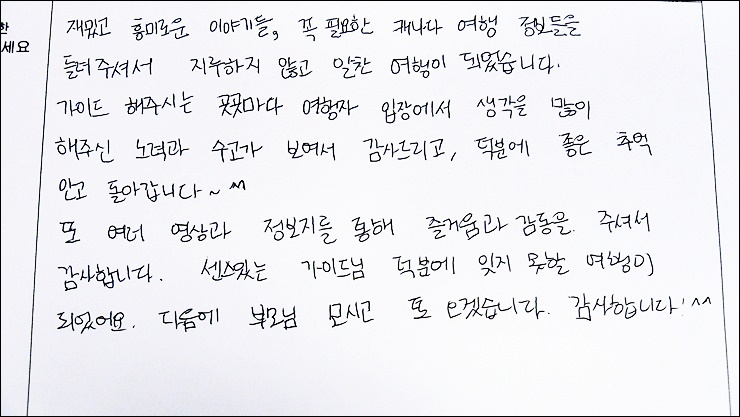 한
세요
재밌고 흥미로운 이야기들, 꼭 필요한 캐나다 여행 정보들을
들려주셔서 지루하지 않고 알찬 여행이 되었습니다.
가이드 해주시는 곳곳마다 여행자 입장에서 생각을 많이
해주신 노력과 수고가 보여서 감사드리고, 덕분에 좋은 추억
안고 돌아갑니다~ ^^
또 여러 영상과 정보지를 통해 즐거움과 감동을 주셔서
감사합니다. 센스있는 가이드님 덕분에 잊지 못할 여행이
되었어요. 다음에 부모님 모시고 또 오겠습니다. 감사합니다! ^^